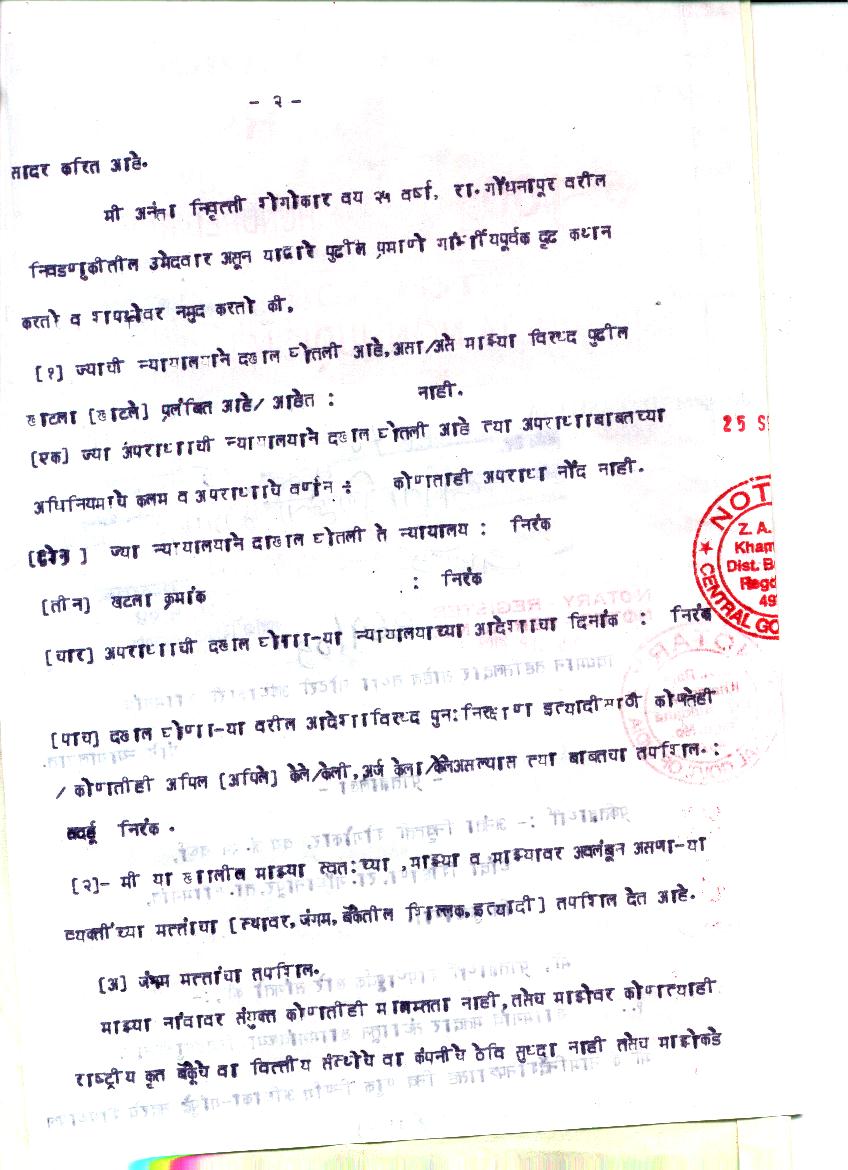 - २ -
सादर करित आहे.
मी अनंता निवृत्ती शेगोकार वय २५ वर्षा, रा.गोंधनापूर वरील
निवडणुकीतील उमेदवार असून याद्वारे पुढील प्रमाणे गांर्भीयपूर्वक दृढ कथान
करतो व शपथेवर नमुद करतो की,
[१] ज्याची न्यायालयाने दखाल घोतली आहे,असा/असे माझ्या विरुध्द पुढील
खाटला [खाटले] प्रलंबित आहे/ आहेत : नाही.
[एक] ज्या अपराधाची न्यायालयाने दखाल घोतली आहे त्या अपराधाबाबतच्या
अधिनियमाचे कलम व अपराधाचे वर्णन : कोणताही अपराधा नोंद नाही.
[दोन ] ज्या न्यायालयाने दाखाल घोतली ते न्यायालय : निरंक
[तीन] खटला क्रमांक : निरंक
[चार] अपराधाची दखाल घोणा-या न्यायालयाच्या आदेशाचा दिनांक : निरंक
[पाच] दखाल घोणा-या वरील आदेशाविरुध्द पुन:निरक्षाण इत्यादीसाठी कोणतेही
/ कोणतीही अपिल [अपिले] केले/केली,अर्ज केला/केलेअसल्यास त्या बाबतचा तपशिल.:
निरंक.
[२]- मी या खालील माझ्या स्वत:च्या ,माझ्या व माझ्यावर अवलंबून असणा-या
व्यक्तींच्या मत्तांचा [स्थावर,जंगम,बँकेतील शिल्लक,इत्यादी] तपशिल देत आहे.
[अ] जंगम मत्तांचा तपशिल.
माझ्या नांवावर संयुक्त कोणतीही मालमत्ता नाही,तसेच माझेवर कोणत्याही
राष्ट्रीय कृत बँकेचे वा वित्तीय संस्थोचे वा कंपनीचे ठेवि सुध्दा नाही तसेच माझेकडे
25 S
NOT
Z. A.
Kham
Dist. B
Regd
49
CENTRAL GO